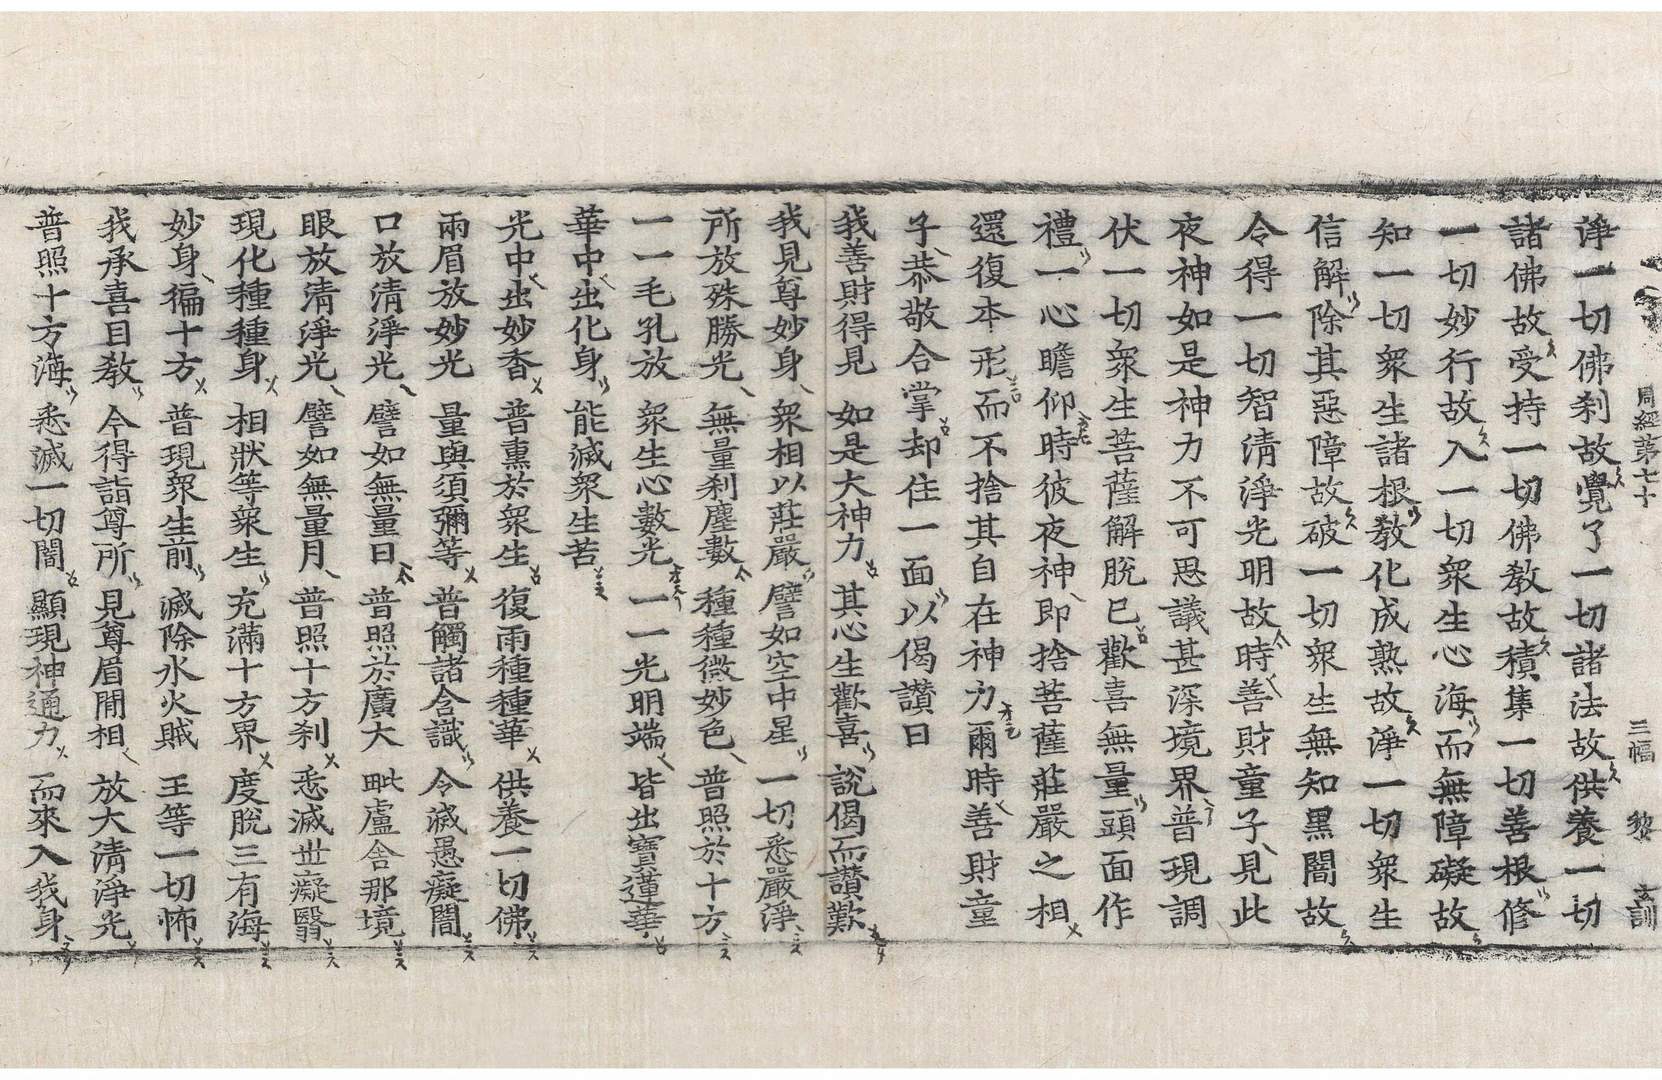 周經第七十 三幅 玄訓
淨一切佛刹故覺了一切諸法故供養一切
諸佛故受持一切佛教故積集一切善根修
一切妙行故入一切衆生心海而無障礙故
知一切衆生諸根教化成熟故淨一切衆生
信解除其惡障故破一切衆生無知黑闇故
令得一切智清淨光明故時善財童子見此
夜神如是神力不可思議甚深境界普現調
伏一切衆生菩薩解脫已歡喜無量頭面作
禮一心瞻仰時彼夜神即捨菩薩莊嚴之相
還復本形而不捨其自在神力爾時善財童
子恭敬合掌却住一面以偈讚曰
我善財得見 如是大神力 其心生歡喜 說偈而讚歎
我見尊妙身 衆相以莊嚴 譬如空中星 一切悉嚴淨
所放殊勝光 無量刹塵數 種種微妙色 普照於十方
一一毛孔放 衆生心數光 一一光明端 皆出寶蓮華
華中出化身 能滅衆生苦
光中出妙香 普熏於衆生 復雨種種華 供養一切佛
兩眉放妙光 量與須彌等 普觸諸含識 令滅愚癡闇
口放清淨光 譬如無量日 普照於廣大 毗盧舍那境
眼放清淨光 譬如無量月 普照十方刹 悉滅世癡翳
現化種種身 相狀等衆生 充滿十方界 度脫三有海
妙身徧十方 普現衆生前 滅除水火賊 王等一切怖
我承喜目教 今得詣尊所 見尊眉間相 放大清淨光
普照十方海 悉滅一切闇 顯現神通力 而來入我身